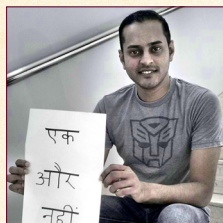 एक
और
नहीं